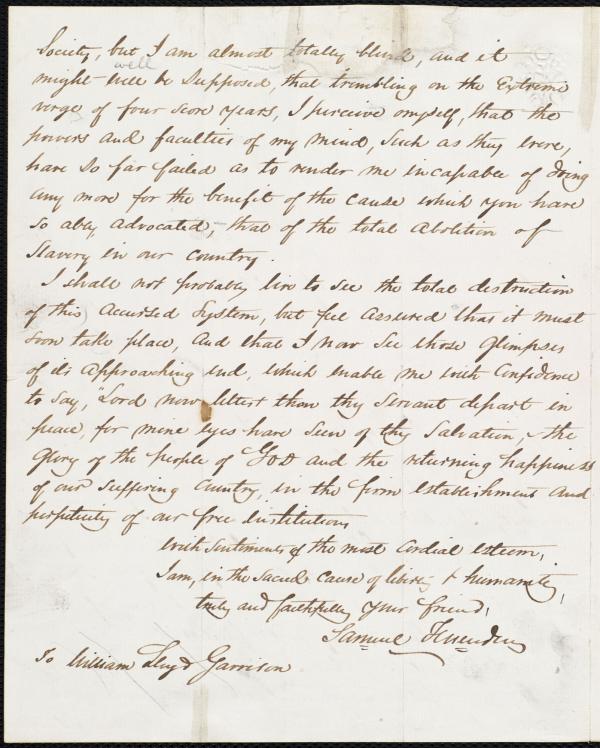 Society, but I am almost totally blind, and it
well
might well be Supposed, that trembling on the Extreme
verge of four score years, I perceive myself, that the
powers and faculties of my mind, Such as they were,
have So far failed as to render me incapable of doing
any more for the benefit of the cause which you have
So ably advocated, - that of the total Abolition of
Slavery in our country.
I shall not probably live to see the total destruction
of this Accursed System, but feel Assured that it must
soon take place, And that I now See those glimpses
of its Approaching end, which enable me with Confidence
to say, Lord now lettest thou thy Servant depart in
peace, for mine eyes have Seen of thy Salvation, the
glory of the people of God and the returning happiness
of our Suffering Country, in the firm establishment and
perpetuity of our free Institutions
With Sentiments of the most Cordial esteem,
I am, in the Sacred cause of liberty & humanity,
truly and faithfully your friend,
Samuel Fessenden
To William Lloyd Garrison